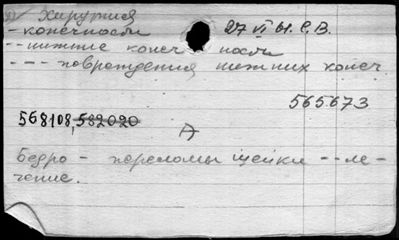 Хирургия
- конечности 27 VI 61. С.В.
-- нижние конечности
--- повреждения нижних конеч.
565673
568108, 582020
А
Бедро - переломы шейки -- ле-
чение.